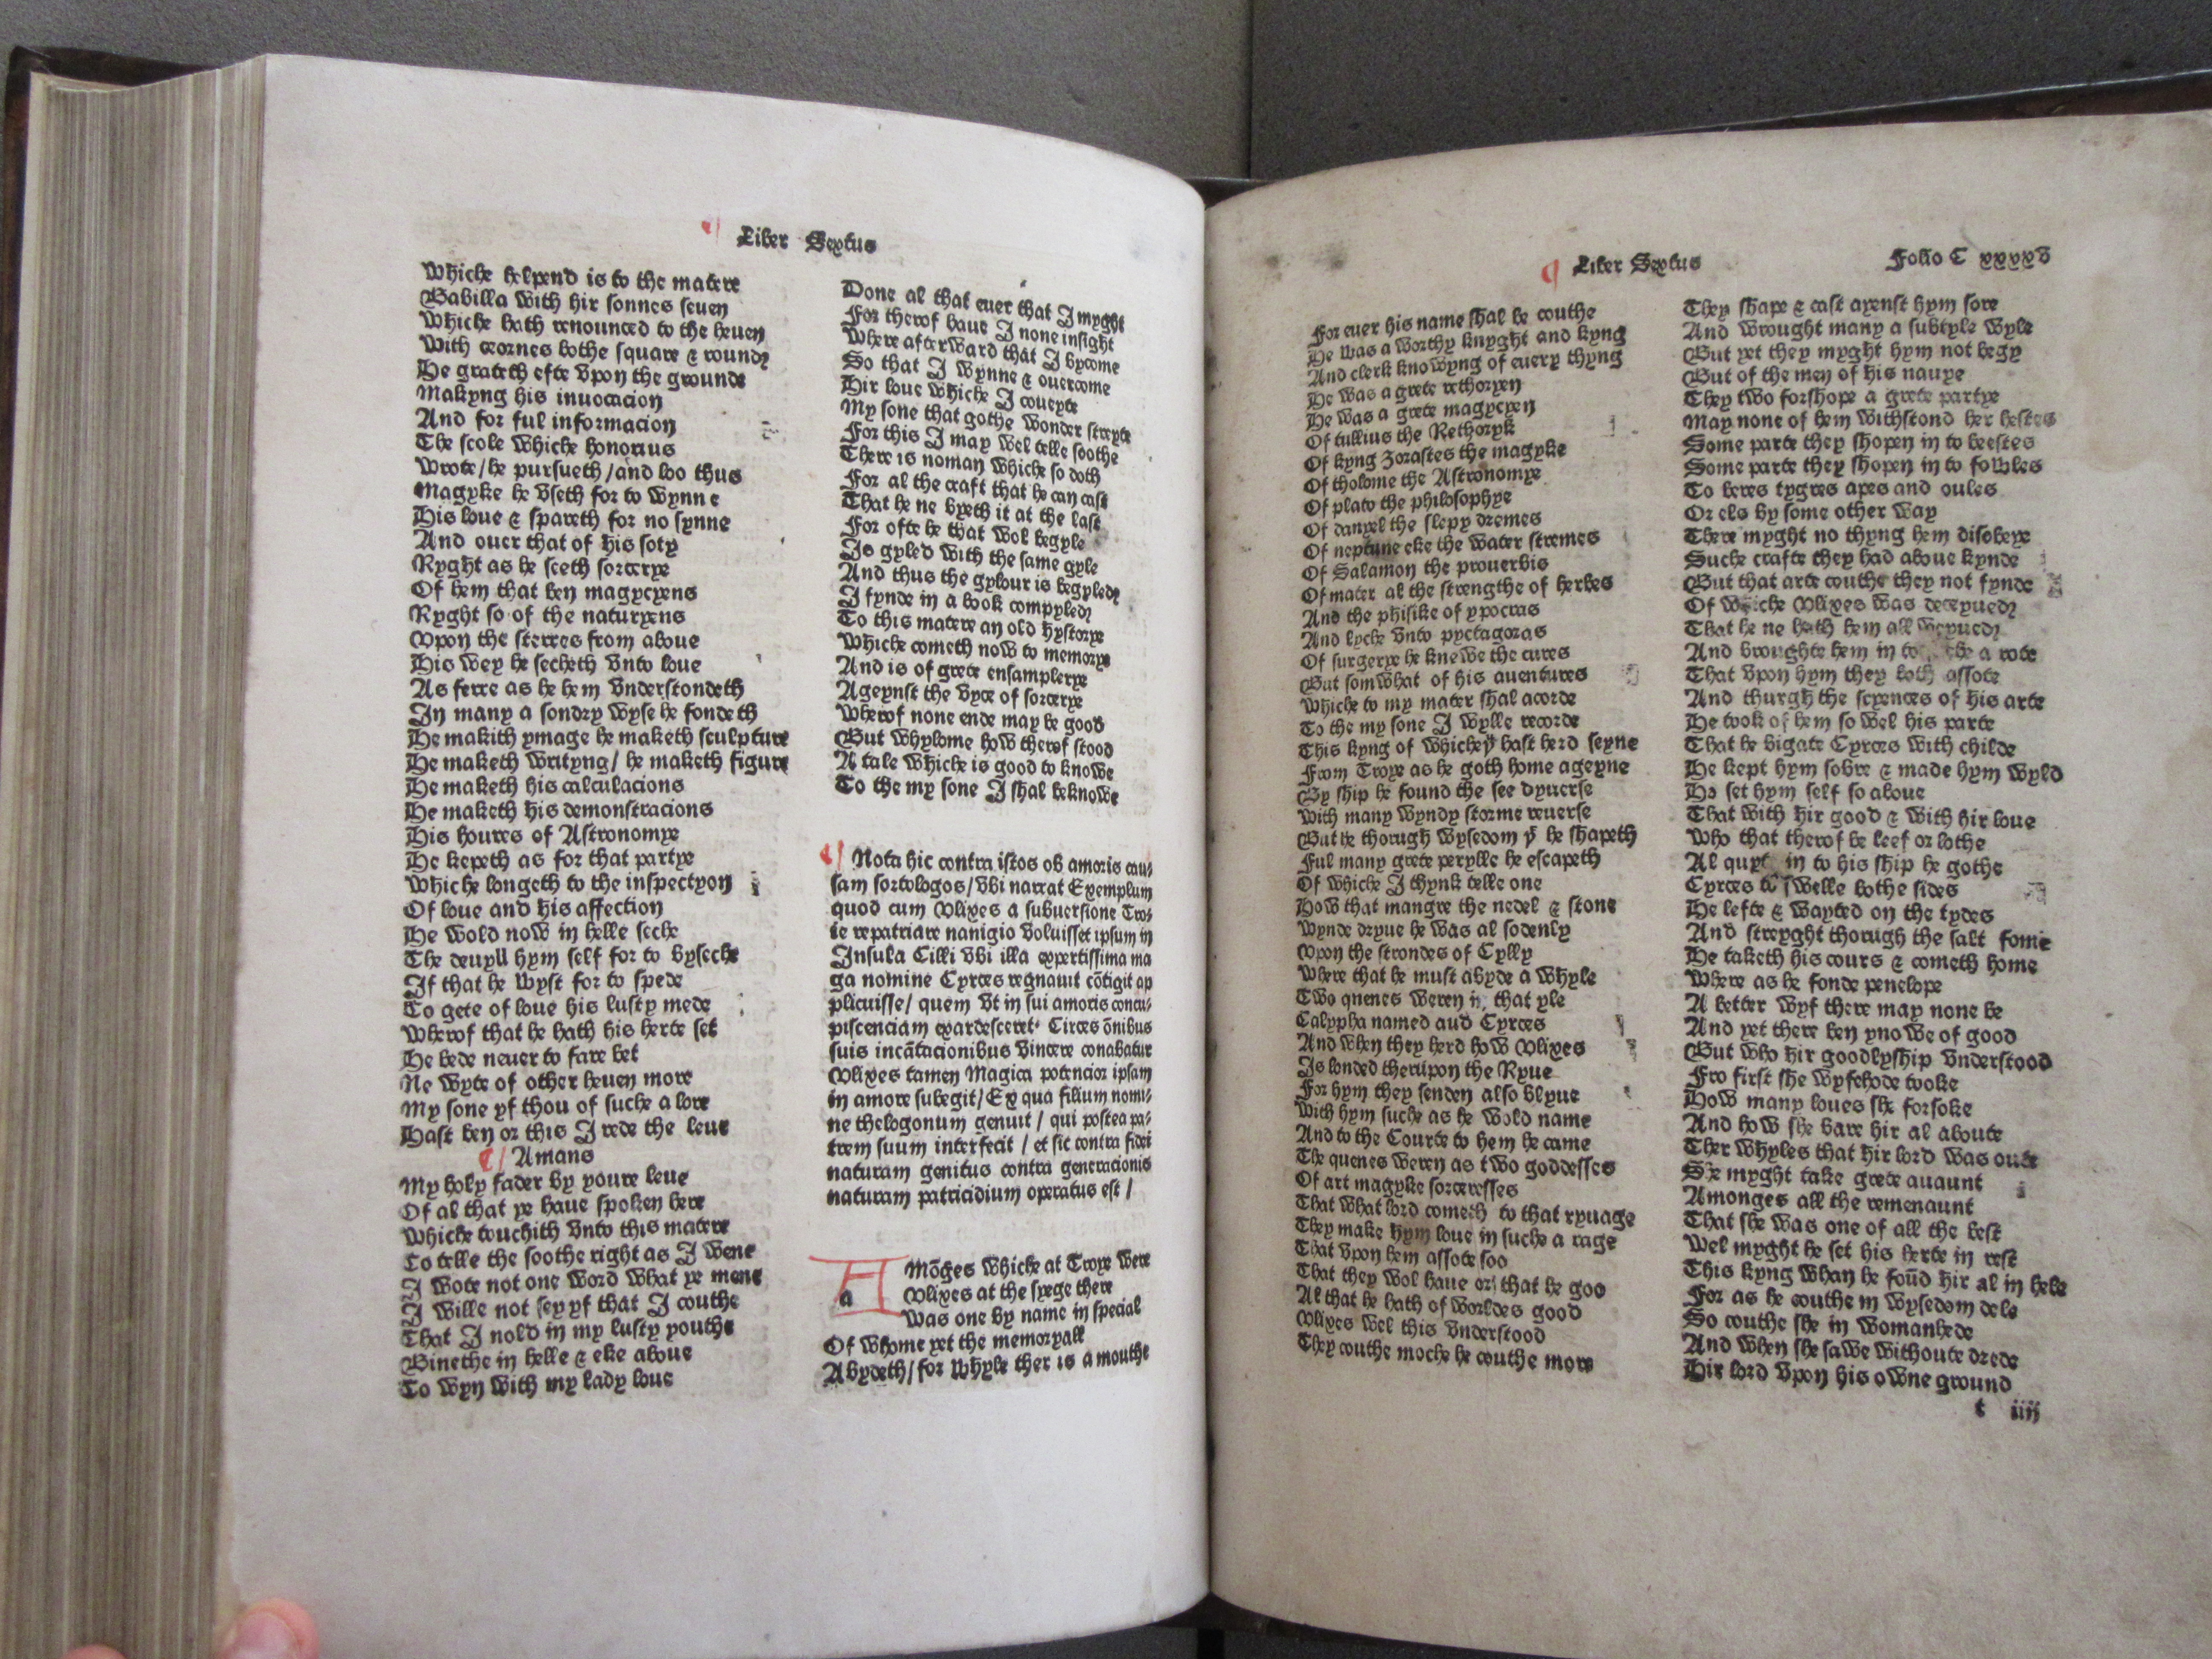 Liber Sextus
Whiche helpend is to the matere
Babilla with hir sonnes seuen
Whiche hath renounced to the heuen
With cernes bothe square & round
He grateth efte vpon the grounde
Makyng his inuocacion
And for ful informacion
The scole whiche honorius
Wrote/he pursueth/and loo thus
Magyke he vseth for to wynne
His loue & spareth for no synne
And ouer that of his soty
Ryght as he seeth sorcerye
Of hem that ben magycyens
Ryght so of the naturyens
Vpon the sterres from aboue
His wey he secheth vnto loue
As ferre as he hem vnderstondeth
In many a sondry wyse he fondeth
He makith ymage he maketh sculpture
He maketh writyng/ he maketh figure
He maketh his calculacions
He maketh his demonstracions
His houres of Astronomye
He kepeth as for that partye
Whiche longeth to the inspectyon
Of loue and his affection
He wold now in helle seche
The deuyll hym self for to byseche
If that he wyst for to spede
To gete of loue his lusty mede
Wherof that he hath his herte set
He bede neuer to fare bet
Ne wyte of other heuen more
My sone yf thou of suche a lore
Hast ben or this I rede the leue
¶ Amans
My holy fader by youre leue
Of al that ye haue spoken here
Whiche touchith vnto this matere
To telle the soothe right as I wene
I wote not one word what ye mene
I wille not sey yf that I couthe
That I nold in my lusty youthe
Binethe in helle & eke aboue
To wyn with my lady loue
Done al that euer that I myght
For therof haue I none insight
Where afterward that I bycome
So that I wynne & ouercome
Hir loue whiche I coueyte
My sone that gothe wonder streyte
For this I may wel telle soothe
There is noman whiche so doth
For al the craft that he can cast
That he ne byeth it at the last
For ofte he that wol begyle
Is gyled with the same gyle
And thus the gylour is begyled
I fynde in a book compyled
To this matere an old hystorye
Whiche cometh now to memorye
And is of grete ensamplerye
Ageynst the vyce of sorcerye
Wherof none ende may be good
But whylome how therof stood
A tale whiche is good to knowe
To the my sone I shal beknowe
¶ Nota hic contra istos ob amoris cau-
sam sortologos/vbi narrat Exemplum
quod cum Vlixes a subuersione Tro-
ie repatriare nanigio voluisset ipsum in
Insula Cilli vbi illa expertissima ma
ga nomine Cyrces regnauit cōtigit ap
plicuisse/ quem vt in sui amoris concu-
piscenciam exardesceret. Circes ōnibus
suis incātacionibus vincere conabatur
Vlixes tamen Magica potencior ipsam
in amore subegit/ Ex qua filium nomi-
ne thelogonum genuit / qui postea pa-
trem suum interfecit / et sic contra fidei
naturam genitus contra generacionis
naturam patricidium operatus est /
a Mōges whiche at Troye were
Vlixes at the syege there
Was one by name in special
Of whome yet the memoryall
Abydeth/for whyle ther is a mouthe
¶ Liber Sextus Folio C xxxxv
For euer his name shal be couthe
He was a worthy knyght and kyng
And clerk knowyng of euery thyng
He was a grete rethoryen
He was a grete magycyen
Of tullius the Rethoryk
Of kyng Zorastes the magyke
Of tholome the Astronomye
Of plato the philosophye
Of danyel the slepy dremes
Of neptune eke the water stremes
Of Salamon the prouerbis
Of mater al the strengthe of herbes
And the phisike of ypocras
And lyche vnto pyctagoras
Of surgerye he knewe the cures
But somwhat of his auentures
Whiche to my mater shal acorde
To the my sone I wylle recorde
This kyng of whiche yͭ hast herd seyne
From Troye as he goth home ageyne
By ship he found the see dyuerse
With many wyndy storme reuerse
But he thorugh wysedom yͭ he shapeth
Ful many grete perylle he escapeth
Of whiche I thynk telle one
How that mangre the nedel & stone
Wynde dryue he was al sodenly
Vpon the strondes of Cylly
Where that he must abyde a whyle
Two qnenes weren in that yle
Calypha named aud Cyrces
And when they herd how Vlixes
Is londed therupon the Ryue
For hym they senden also blyue
With hym suche as he wold name
And to the Courte to hem he came
The quenes weren as two goddesses
Of art magyke sorceresses
That what lord cometh to that ryuage
They make hym loue in suche a rage
That vpon hem assote soo
That they wol haue or that he goo
Al that he hath of worldes good
Vlixes wel this vnderstood
They couthe moche he couthe more
They shape & cast ayenst hym sore
And wrought many a subtyle wyle
But yet they myght hym not begy
But of the men of his nauye
They two forshope a grete partye
May none of hem withstond her hestes
Some parte they shopen in to beestes
Some parte they shopen in to fowles
To beres tygres apes and oules
Or els by some other way
There myght no thyng hem disobeye
Suche crafte they had aboue kynde
But that arte couthe they not fynde
Of whiche Vlixes was deceyued
That he ne hath hem all weyued
And broughte hem in to che a rote
That vpon hym they both assote
And thurgh the scyences of his arte
He took of hem so wel his parte
That he bigate Cyrces with childe
He kept hym sobre & made hym wyld
He set hym self so aboue
That with hir good & with hir loue
Who that therof be leef or lothe
Al quyt in to his ship he gothe
Cyrces to swelle bothe sides
He lefte & wayted on the tydes
And streyght thorugh the salt fome
He taketh his cours & cometh home
Where as he fonde penelope
A better wyf there may none be
And yet there ben ynowe of good
But who hir goodlyship vnderstood
Fro first she wyfehode tooke
How many loues she forsoke
And how she bare hir al aboute
Ther whyles that hir lord was oute
She myght take grete auaunt
Amonges all the remenaunt
That she was one of all the best
Wel myght he set his herte in rest
This kyng whan he foūd hir al in hele
For as he couthe in wysedom dele
So couthe she in womanhede
And when she sawe withoute drede
Hir lord vpon his owne ground
t iiij